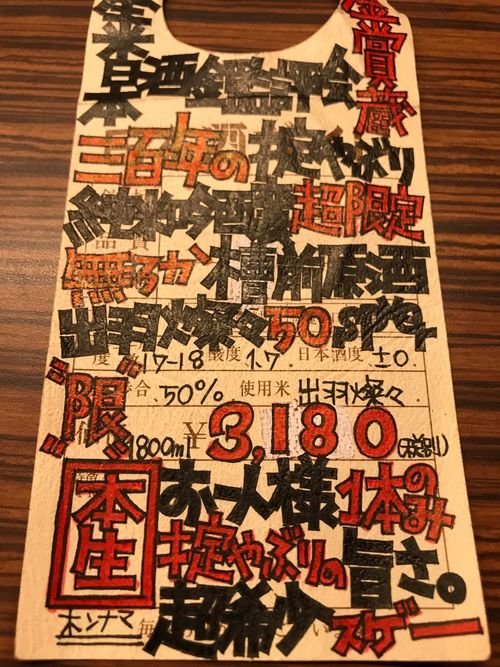 全米日本酒鑑評会
金賞蔵
三百年の掟やぶり
純米吟醸超限定
無ろか槽前原酒
出羽燦々50%
度 17-18 酸度 1.7 日本酒度 ±0
合 50% 使用米 出羽燦々
"限"
1800ml ¥3,180(税別)
本生
お一人様1本のみ
掟やぶりの旨さ。
ホンナマ
超希少スゲー